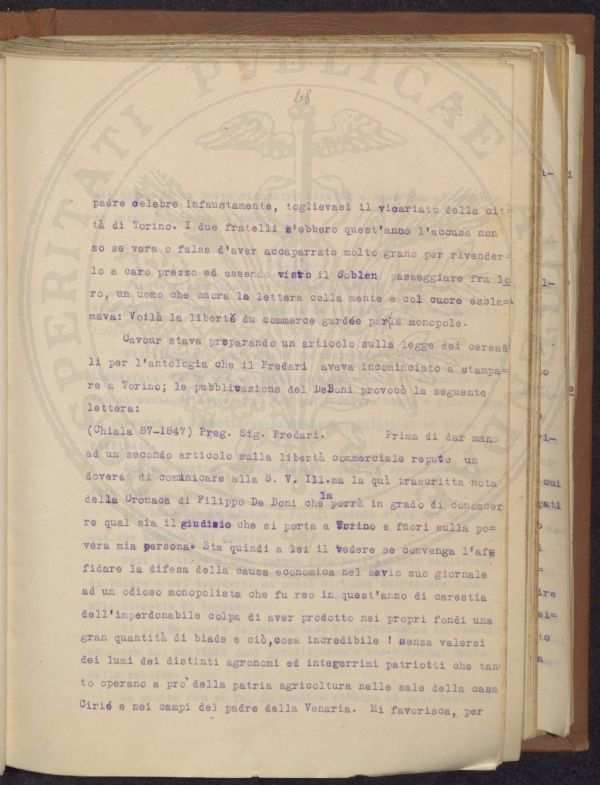 48
padre celebre infaustamente, toglievasi il vicariato della cit=
tà di Torino. I due fratelli s'ebbero quest'anno l'accusa non
so se vera o falsa d'aver accaparrato molto grano per rivender=
lo a caro prezzo ed essendo visto il Soblen passeggiare fra lo
ro, un uomo che onora le lettera colla mente e col cuore escla=
mava: Voilà la liberté du commerce gardée par le monopole.
Cavour stava preparando un articolo sulla legge dei cerea=
li per l'antologia che il Predari aveva incominciato a stampa=
re a Torino; le pubblicazione del DeBoni provocò la seguente
lettera:
(Chiala 87-1847) Preg. Sig. Predari. Prima di dar mano
ad un secondo articolo sulla libertà commerciale reputo un
dovere di comunicare alla S. V. Ill.ma la quì trascritta nota
della Cronaca di Filippo De Boni che la porrà in grado di conoscer
re qual sia il giudizio che si porta a Torino e fuori sulla po=
vera mia persona. Sta quindi a lei il vedere se convenga l'af=
fidare la difesa della causa economica nel savio suo giornale
ad un odioso monopolista che fu reo in quest'anno di carestia
dell'imperdonabile colpa di aver prodotto nei propri fondi una
gran quantità di biade e ciò,cosa incredibile ! senza valersi
dei lumi dei distinti agronomi ed integerrimi patriotti che tan
to operano a pro' della patria agricoltura nelle sale della casa
Cirié e nei campi del padre della Venaria. Mi favorisca, per